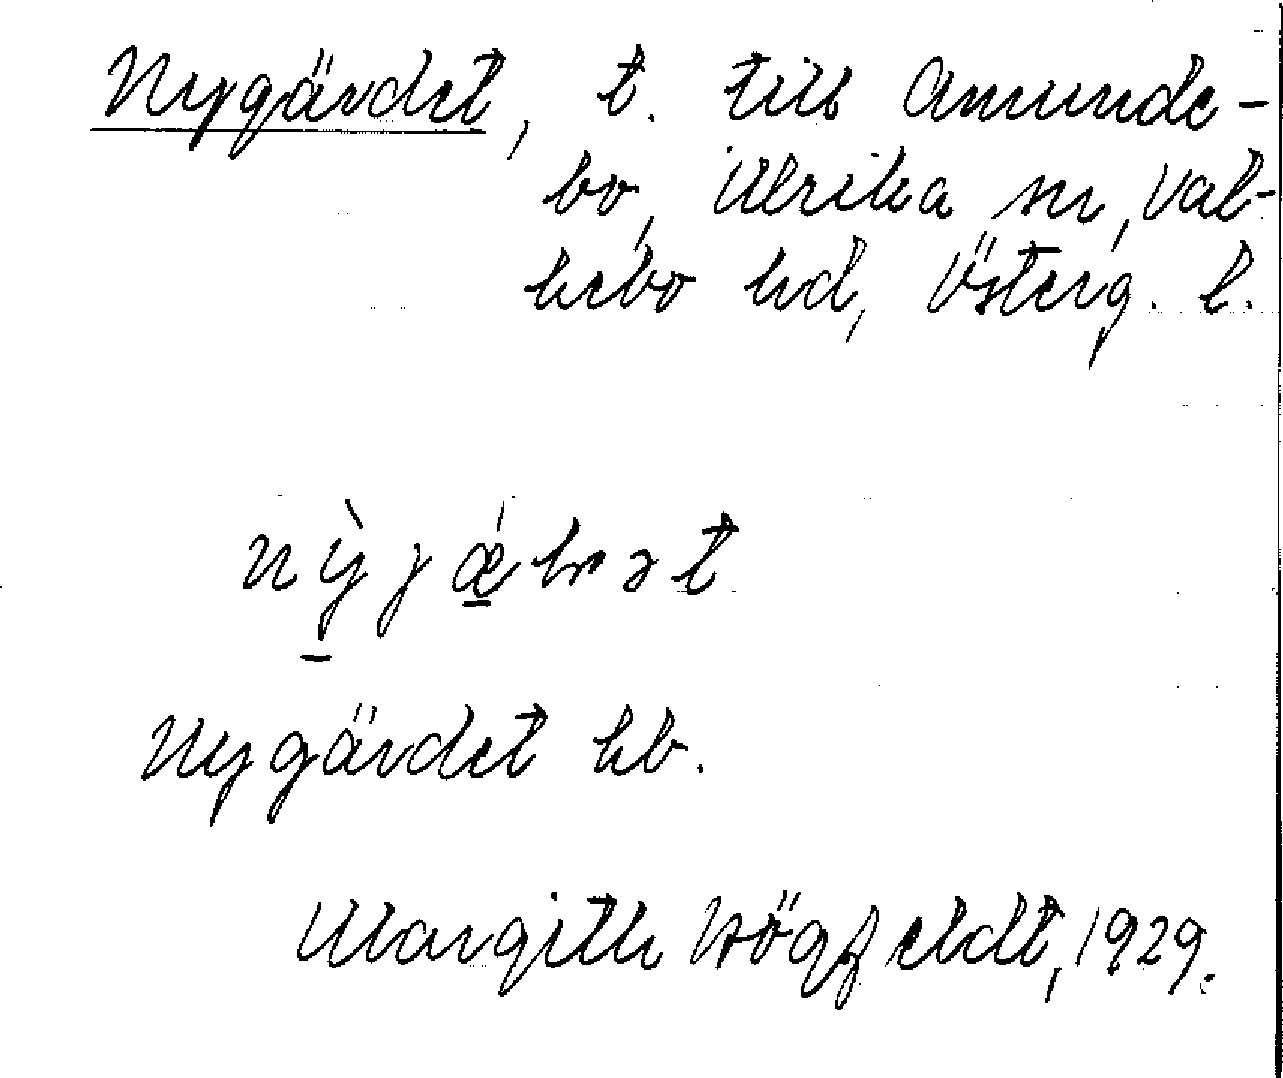 Nygärdet, t. till Amunde-
bo, Ulrika sn, Val-
kebo hd, Österg. l.
Nygärdet kb.
Margith Högfeldt, 1929.